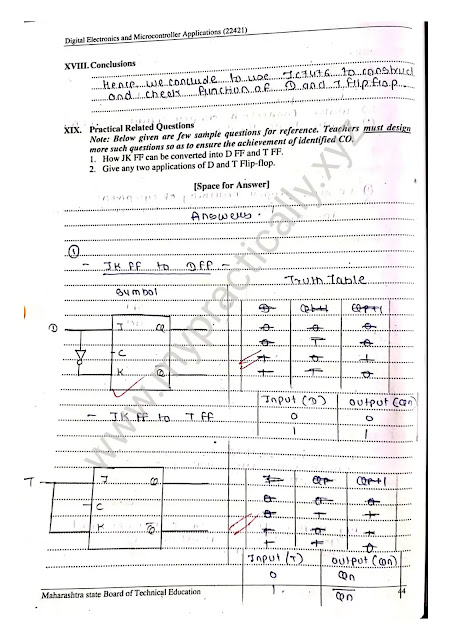 Digital Electronics and Microcontroller Applications (22421)
XVIII. Conclusions
Hence we conclude to use IC7476 to construct
and check function of D and T flip flop.
XIX. Practical Related Questions
Note: Below given are few sample questions for reference. Teachers must design
more such questions so as to ensure the achievement of identified CO.
1. How JK FF can be converted into D FF and T FF.
2. Give any two applications of D and T Flip-flop.
[Space for Answer]
Answers.
①
- JK FF to DFF -
Symbol
Truth Table
D J Q
C
K Q̅
Input (D) Output (Qn)
0 0
1 1
- JK FF to T FF
T J Q
C
K Q̅
Input (T) Output (Qn)
0 Qn
1 Q̅n
Maharashtra state Board of Technical Education 44
www.mypractically.xyz